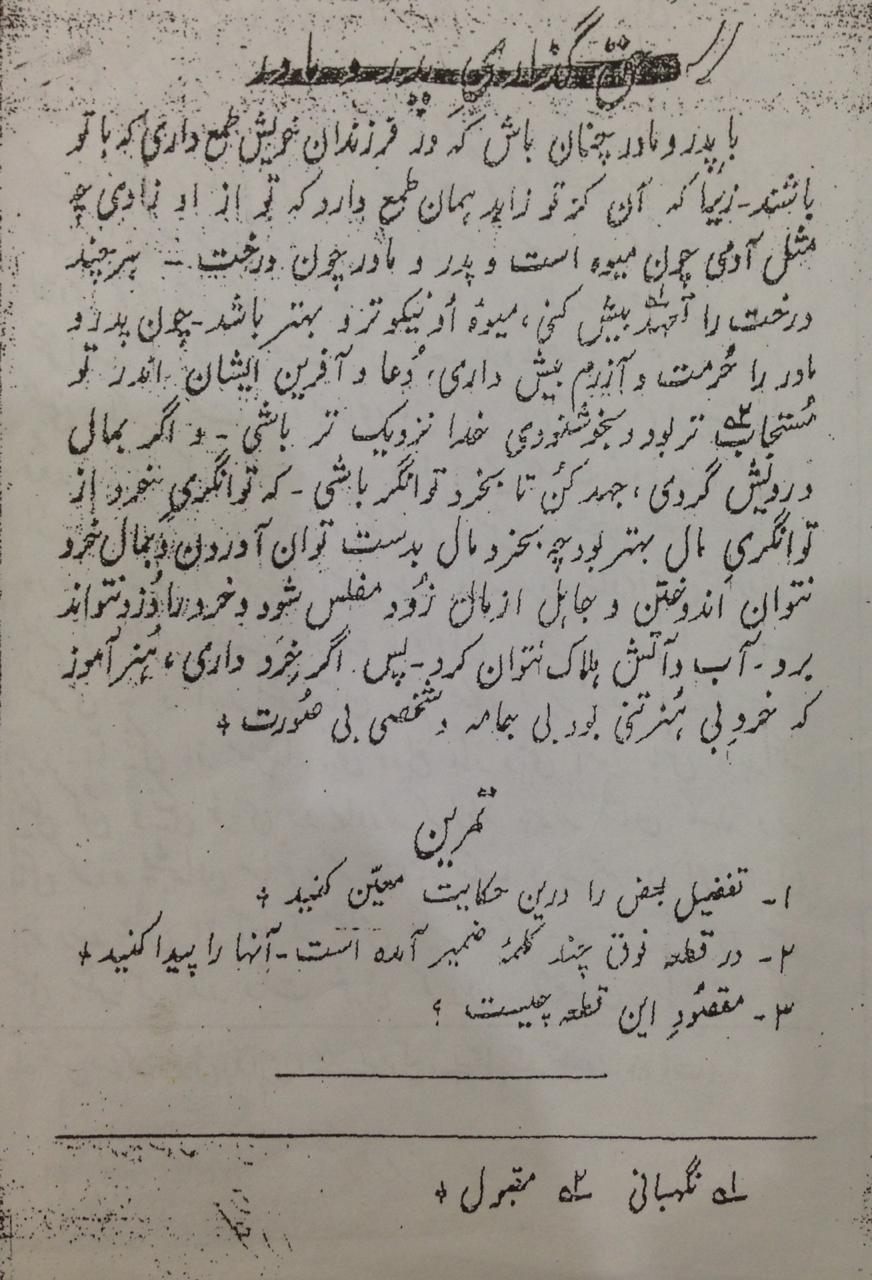 حق گذاری پدر و مادر
با پدر و مادر چنان باش که در فرزندان خویش طمع داری که با تو
باشند۔ زیرا که آن کز تو زاید همان طمع دارد که تو از او زادی چه
مثل آدمی چون میوه است و پدر و مادر چون درخت ۔ هر چند
درخت را تعهّد۱ بیش کنی، میوهٔ اُو نیکوتر و بهتر باشد۔ چون پدر و
مادر را حُرمت و آزرم بیش داری، دُعا و آفرین ایشان اندر تو
مُستجاب۲ تر بود و بخوشنودی خدا نزدیک تر باشی ۔ و اگر بمال
درویش گردی، جهد کن تا بخرد توانگر باشی ۔ که توانگریِ خرد از
توانگریِ مال بهتر بود چه بخرد مال بدست توان آوردن و بمال خرد
نتوان اندوختن و جاهل از مال زُود مفلس شود و خرد را دُزد نتواند
برد ۔ آب و آتش هلاک نتوان کرد۔ پس اگر خِرَد داری، هُنر آموز
که خردِ بی هُنر تنی بود بی جامه و شخصی بی صُورت ٭
تمرین
۱۔ تفضیل بعض را درین حکایت معیّن کنید ٭
۲۔ در قطعه فوق چند کلمهٔ ضمیر آمده است۔ آنها را پیدا کنید ٭
۳۔ مقصُودِ این قطعه چیست ؟
۱ نگهبانی ۲ مقبول ٭